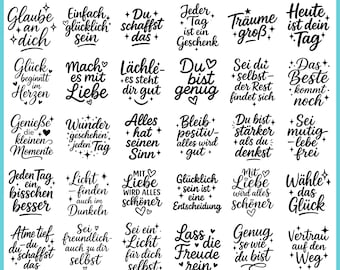 Glaube
an
dich
Einfach
glücklich
sein
Du
schaffst
das
Jeder
Tag
ist ein
Geschenk
Träume
groß
Heute
ist dein
Tag
Glück
beginnt
im
Herzen
Mach
es mit
Liebe
Lächle
es steht
dir gut
Du
bist
genug
Sei du
selbst
der Rest
findet sich
Das
Beste
kommt
noch
Genieße
die
kleinen
Momente
Wunder
geschehen
jeden Tag
Alles
hat
seinen
Sinn
Bleib
positiv
alles wird
gut
Du bist
stärker
als du
denkst
Sei
mutig
lebe
frei
Jeden Tag
ein
bisschen
besser
Licht
finden
auch im
Dunkeln
MIT
Liebe
WIRD ALLES
schöner
Glücklich
sein ist
eine
Entscheidung
Mit
Liebe
wird alles
schöner
Wähle
das
Glück
Atme tief
du
schaffst
das
Sei
freundlich
auch zu dir
selbst
Sei ein
Licht
für dich
selbst
Lass
die
Freude
rein
Genug
so wie
du bist
Vertrau
auf den
Weg